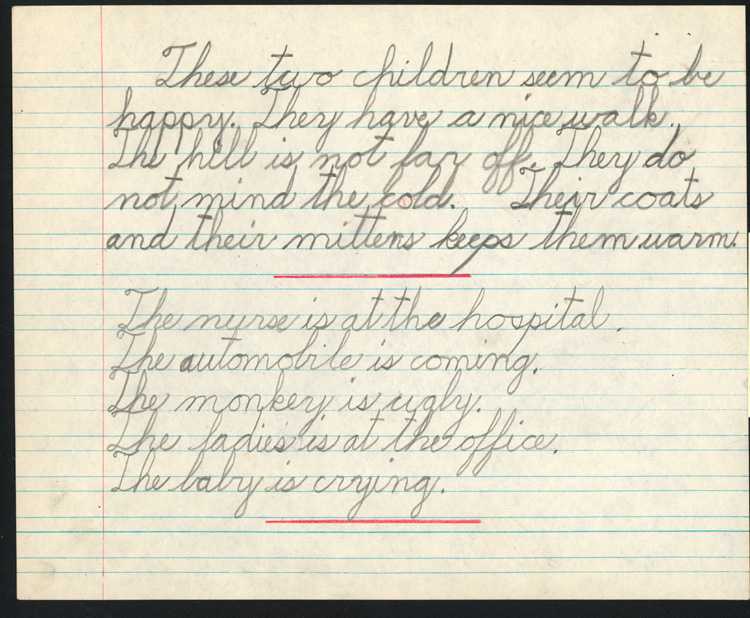 These two children seem to be
happy. They have a nice walk.
The hill is not far off. They do
not mind the cold. Their coats
and their mittens keeps them warm.
The nurse is at the hospital.
The automobile is coming.
The monkey is ugly.
The ladies is at the office.
The baby is crying.